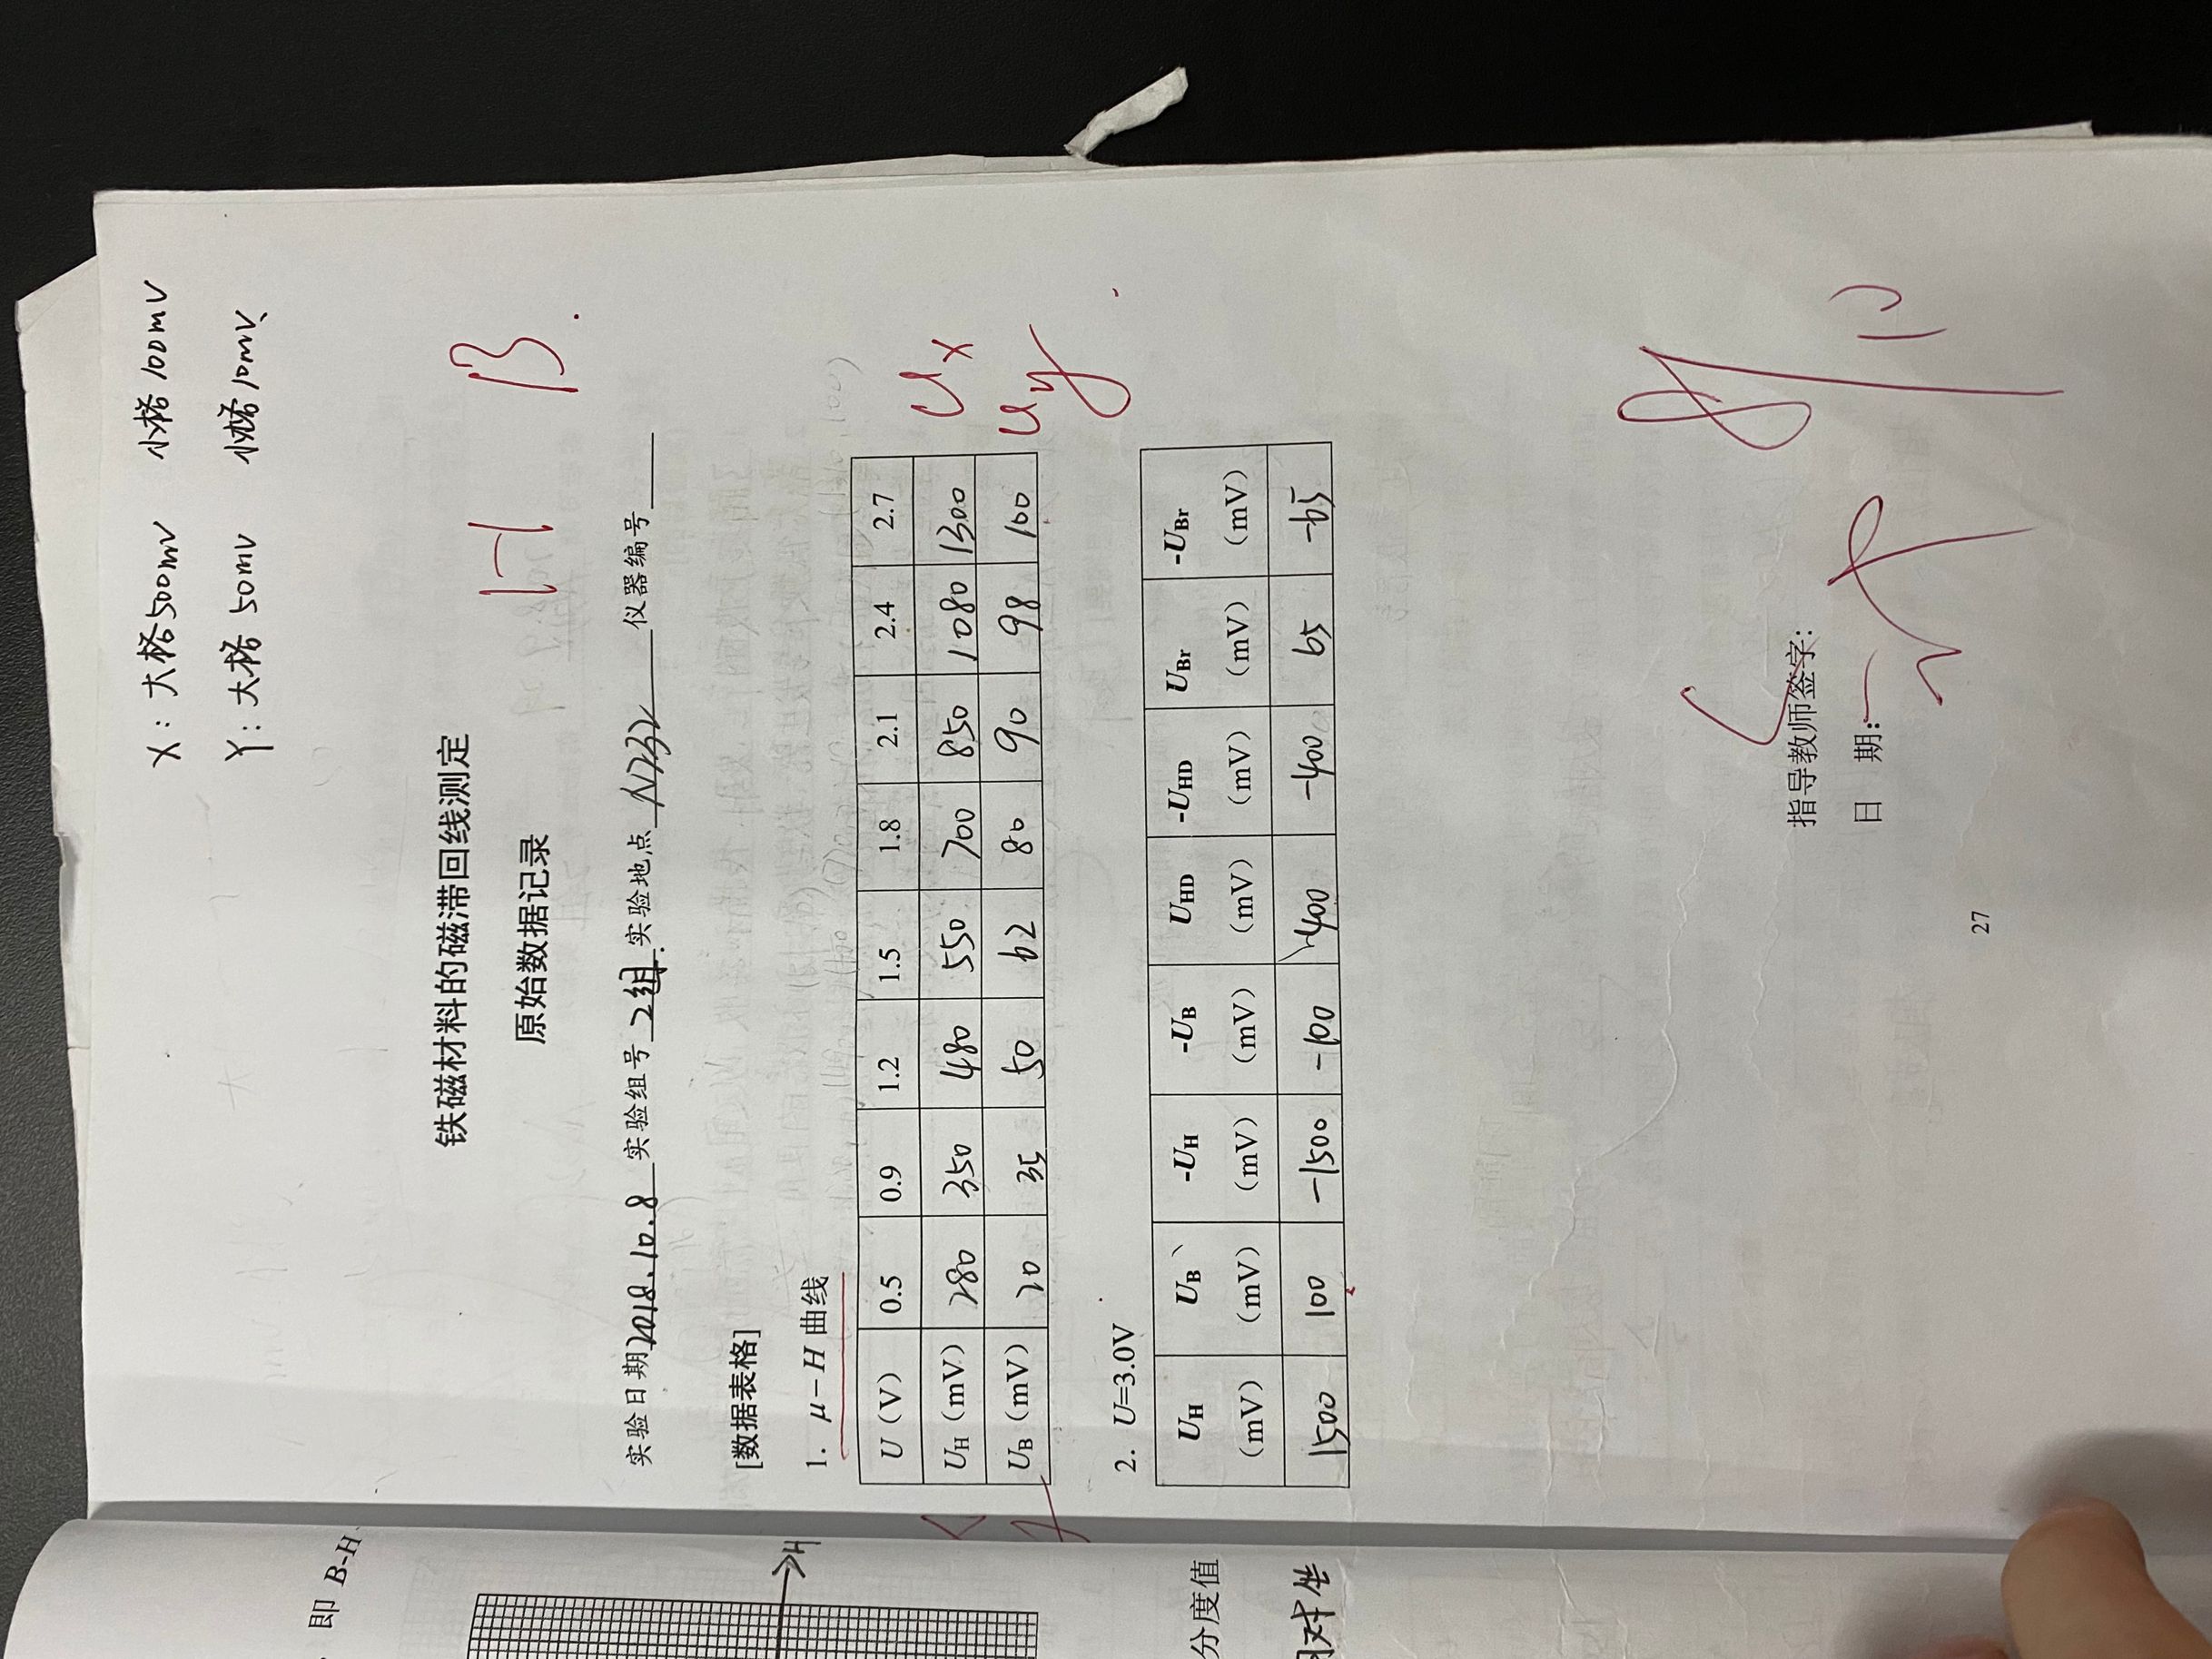 X：大格500mV 小格100mV
Y：大格 50mV 小格10mV
即 B-H
铁磁材料的磁滞回线测定
H B
原始数据记录
实验日期2018.10.8 实验组号 2组 实验地点 N232 仪器编号
[数据表格]
H
1. μ－H 曲线
U（V） 0.5 0.9 1.2 1.5 1.8 2.1 2.4 2.7
UH（mV） 280 350 480 550 700 850 1080 1300 Ux
UB（mV） 20 35 50 62 80 90 98 100 Uy
2. U=3.0V
UH（mV） UB（mV） -UH（mV） -UB（mV） UHD（mV） -UHD（mV） UBr（mV） -UBr（mV）
分度值
1500 100 -1500 -100 400 -400 65 -65
指导教师签字:
日 期: 8/10
27